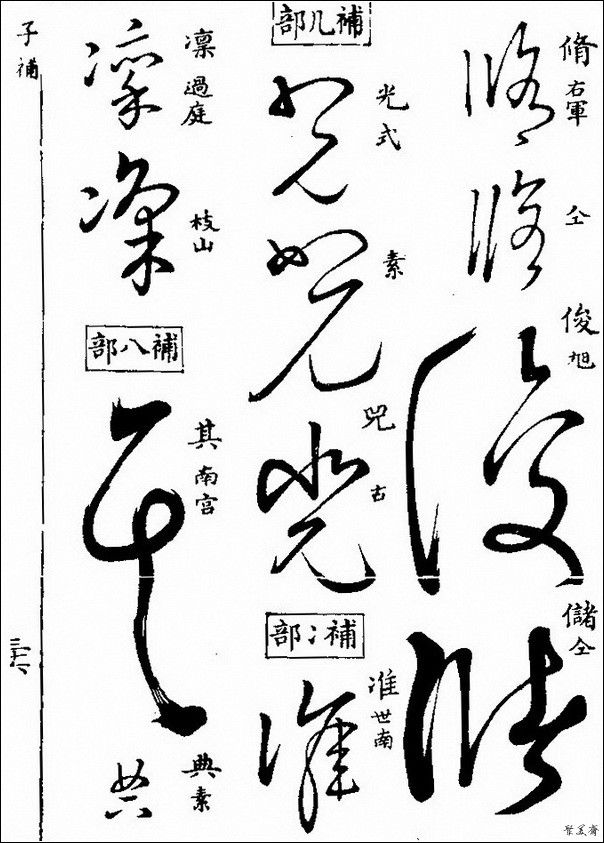 脩 右軍
仝
俊 旭
儲 仝
補几部
光 式
素
古
補冫部
准 世南
凛 過庭
枝山
補八部
其 南宮
典 素
子補